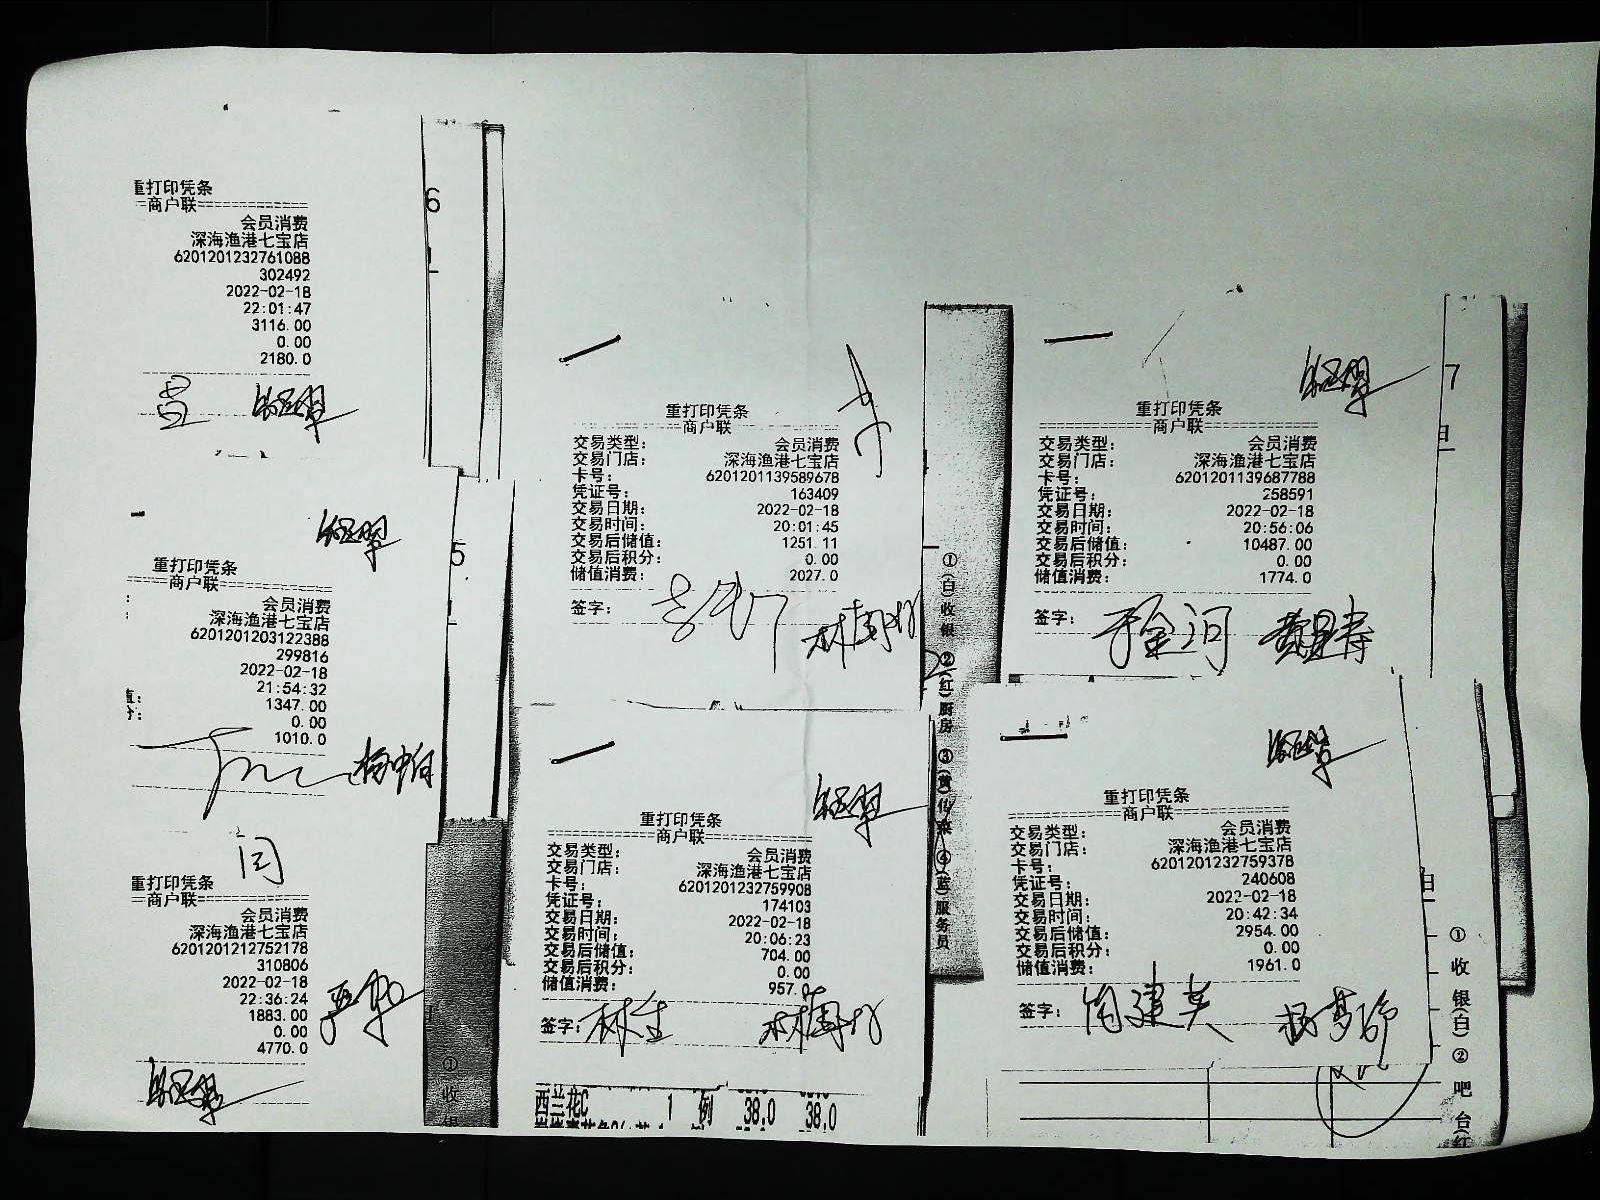 重打印凭条
==商户联==============
会员消费
深海渔港七宝店
6201201232761088
302492
2022-02-18
22:01:47
3116.00
0.00
2180.0
6
重打印凭条
=====商户联==============
会员消费
深海渔港七宝店
6201201203122388
299816
2022-02-18
21:54:32
1347.00
0.00
1010.0
5
闫
重打印凭条
==商户联==============
会员消费
深海渔港七宝店
6201201212752178
310806
2022-02-18
22:36:24
1883.00
0.00
4770.0
①收银
重打印凭条
商户联
交易类型： 会员消费
交易门店： 深海渔港七宝店
卡号： 6201201139589678
凭证号： 163409
交易日期： 2022-02-18
交易时间： 20:01:45
交易后储值： 1251.11
交易后积分： 0.00
储值消费： 2027.0
签字：
①(白)收银 ②(红)厨房 ③(黄)传菜 ④(蓝)服务员
重打印凭条
==============商户联==============
交易类型： 会员消费
交易门店： 深海渔港七宝店
卡号： 6201201232759908
凭证号： 174103
交易日期： 2022-02-18
交易时间： 20:06:23
交易后储值： 704.00
交易后积分： 0.00
储值消费： 957.0
签字： 林生
西兰花C 1 例 38.0 38.0
重打印凭条
==============商户联==============
交易类型： 会员消费
交易门店： 深海渔港七宝店
卡号： 6201201139687788
凭证号： 258591
交易日期： 2022-02-18
交易时间： 20:56:06
交易后储值： 10487.00
交易后积分： 0.00
储值消费： 1774.0
签字： 于金河
7
重打印凭条
==============商户联==============
交易类型： 会员消费
交易门店： 深海渔港七宝店
卡号： 6201201232759378
凭证号： 240608
交易日期： 2022-02-18
交易时间： 20:42:34
交易后储值： 2954.00
交易后积分： 0.00
储值消费： 1961.0
签字：
①收银(白) ②吧台(红